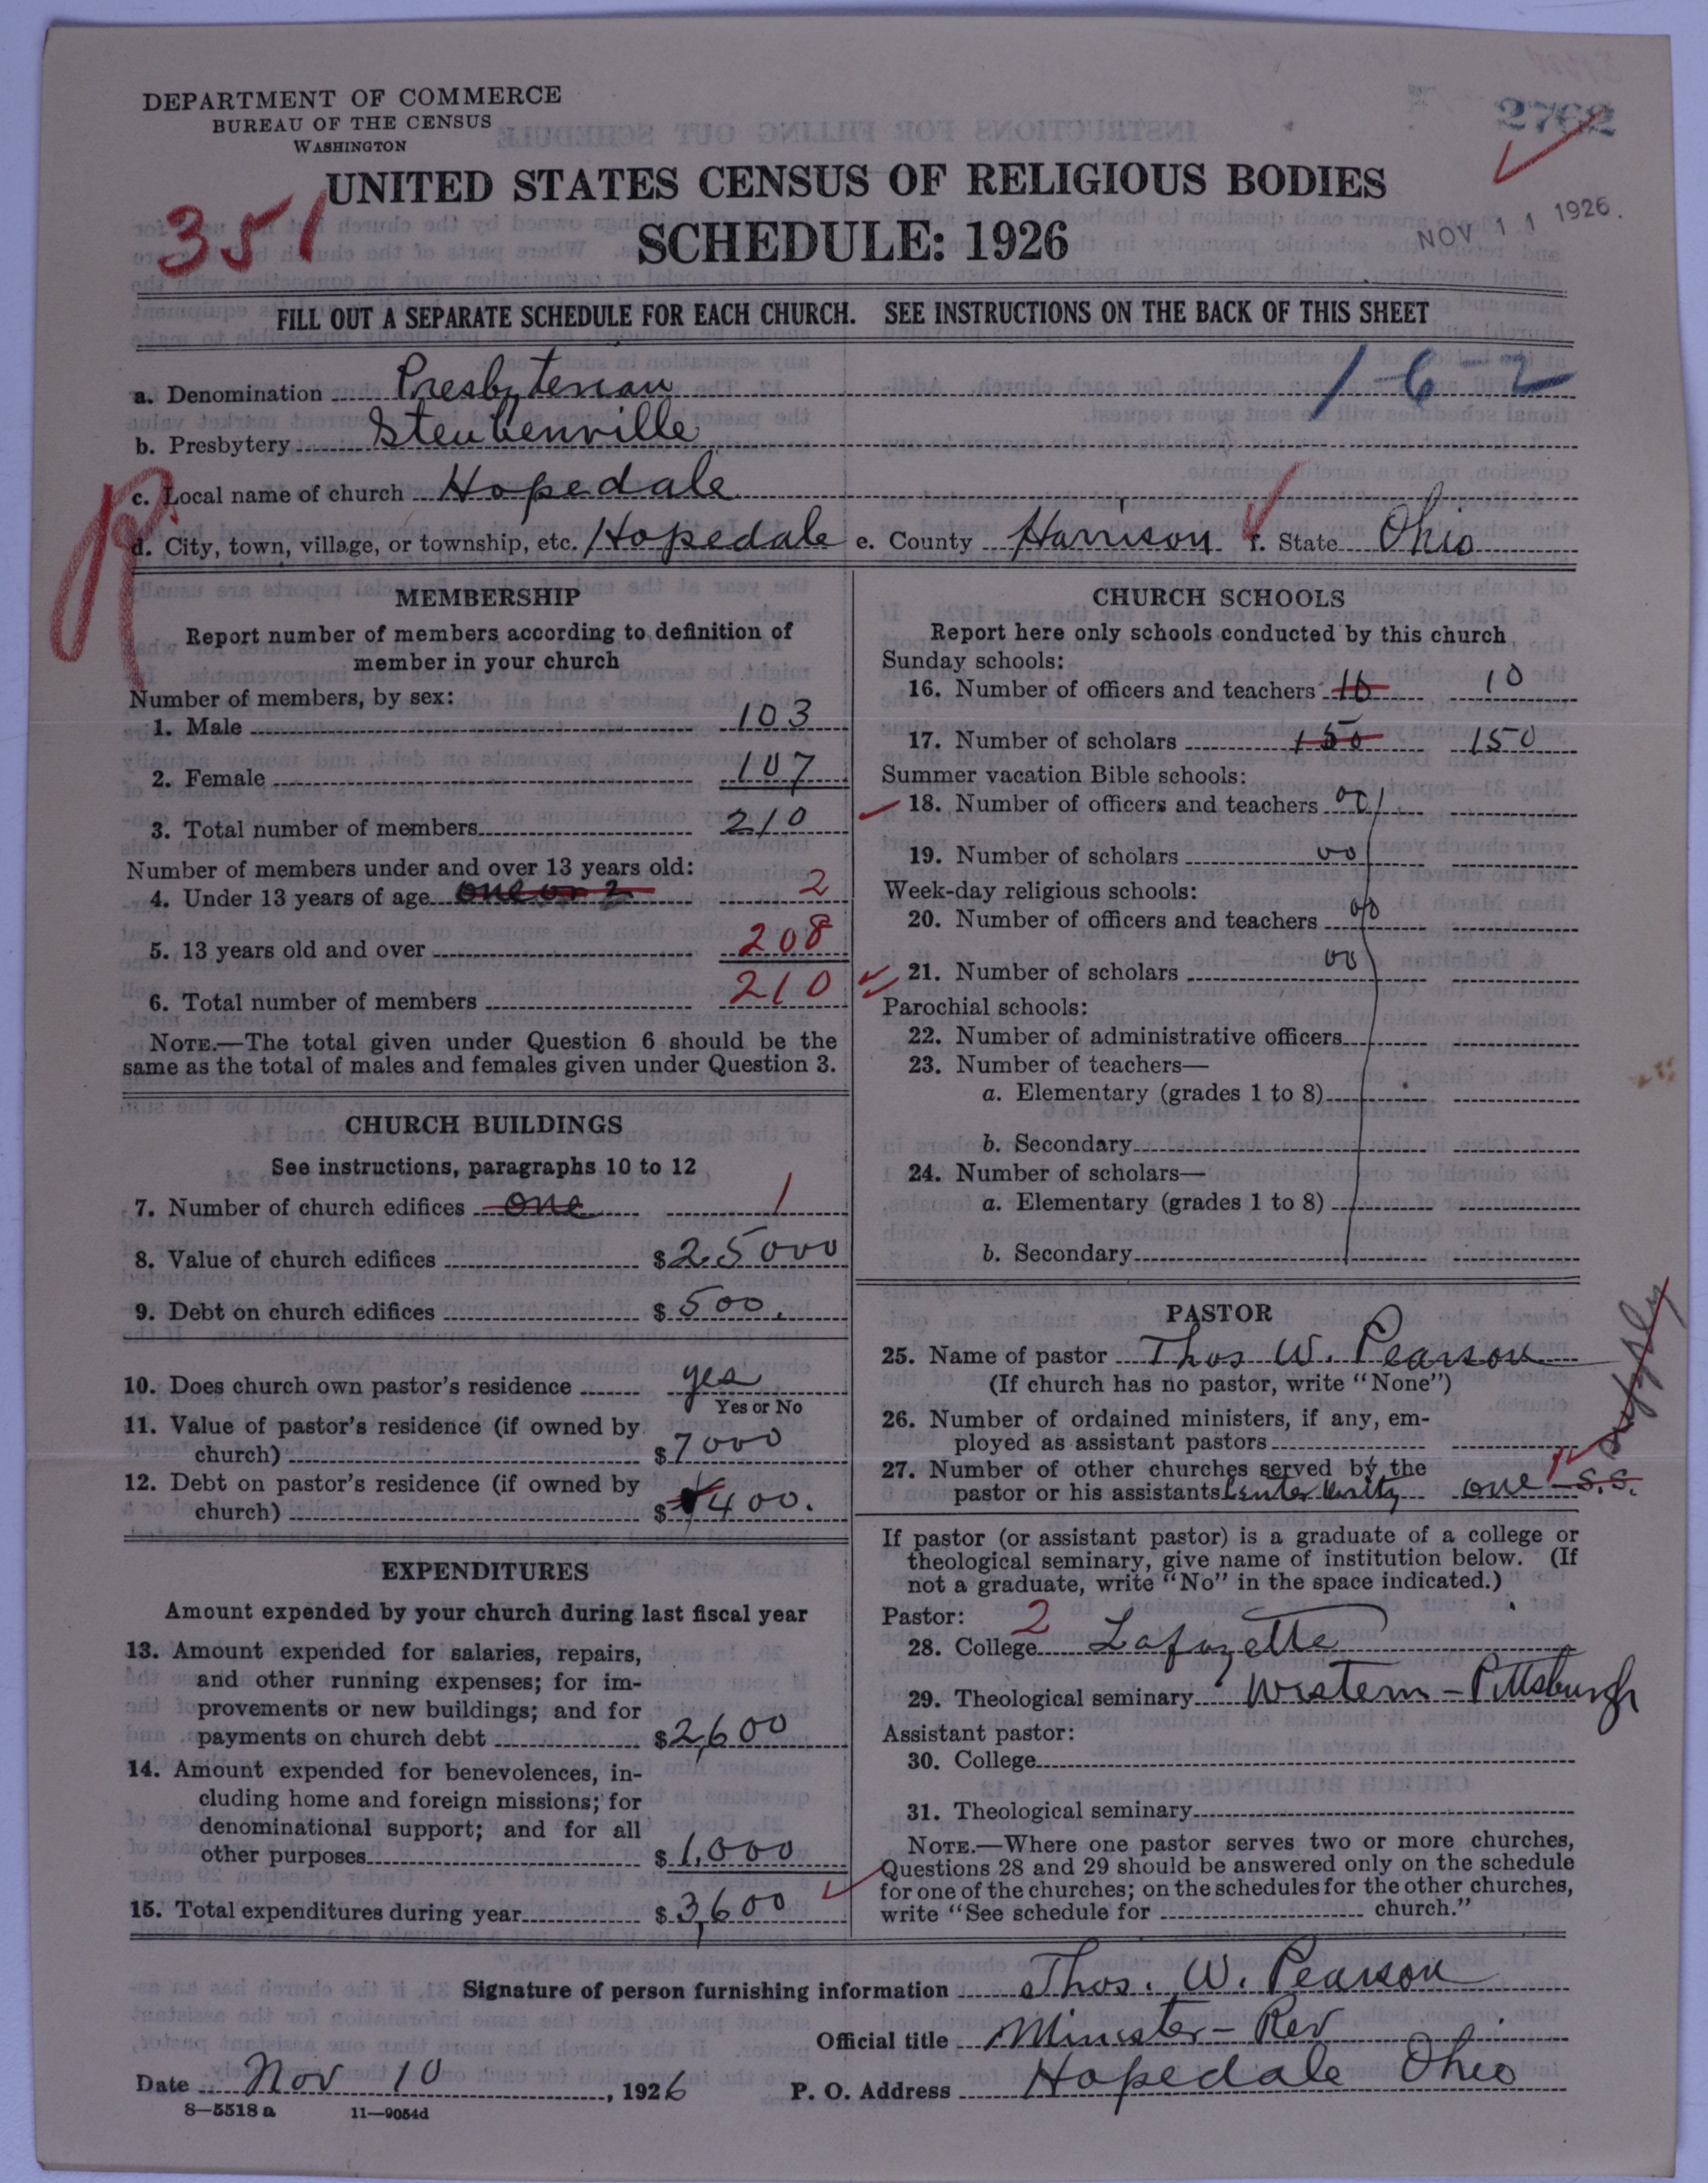 DEPARTMENT OF COMMERCE
BUREAU OF THE CENSUS
WASHINGTON
2762
UNITED STATES CENSUS OF RELIGIOUS BODIES
351
SCHEDULE: 1926
NOV 11 1926.
FILL OUT A SEPARATE SCHEDULE FOR EACH CHURCH. SEE INSTRUCTIONS ON THE BACK OF THIS SHEET
1-6-2
a. Denomination Presbyterian
b. Presbytery Steubenville
c. Local name of church Hopedale
d. City, town, village, or township, etc. Hopedale e. County Harrison f. State Ohio
MEMBERSHIP
Report number of members according to definition of
member in your church
Number of members, by sex:
1. Male 103
2. Female 107
3. Total number of members 210
Number of members under and over 13 years old:
4. Under 13 years of age one or 2 2
5. 13 years old and over 208
6. Total number of members 210
NOTE.—The total given under Question 6 should be the
same as the total of males and females given under Question 3.
CHURCH BUILDINGS
See instructions, paragraphs 10 to 12
7. Number of church edifices one 1
8. Value of church edifices $25000
9. Debt on church edifices $500.
10. Does church own pastor's residence yes
Yes or No
11. Value of pastor's residence (if owned by
church) $7000
12. Debt on pastor's residence (if owned by
church) $400.
EXPENDITURES
Amount expended by your church during last fiscal year
13. Amount expended for salaries, repairs,
and other running expenses; for im-
provements or new buildings; and for
payments on church debt $2,600
14. Amount expended for benevolences, in-
cluding home and foreign missions; for
denominational support; and for all
other purposes $1,000
15. Total expenditures during year $3,600
CHURCH SCHOOLS
Report here only schools conducted by this church
Sunday schools:
16. Number of officers and teachers 10 10
17. Number of scholars 150 150
Summer vacation Bible schools:
18. Number of officers and teachers 00
19. Number of scholars 00
Week-day religious schools:
20. Number of officers and teachers 00
21. Number of scholars 00
Parochial schools:
22. Number of administrative officers
23. Number of teachers—
a. Elementary (grades 1 to 8)
b. Secondary
24. Number of scholars—
a. Elementary (grades 1 to 8)
b. Secondary
PASTOR
25. Name of pastor Thos W. Pearson
(If church has no pastor, write "None")
26. Number of ordained ministers, if any, em-
ployed as assistant pastors
27. Number of other churches served by the
pastor or his assistants Center Unity one S.S.
supply
If pastor (or assistant pastor) is a graduate of a college or
theological seminary, give name of institution below. (If
not a graduate, write "No" in the space indicated.)
Pastor: 2
28. College Lafayette
29. Theological seminary Western-Pittsburgh
Assistant pastor:
30. College
31. Theological seminary
NOTE.—Where one pastor serves two or more churches,
Questions 28 and 29 should be answered only on the schedule
for one of the churches; on the schedules for the other churches,
write "See schedule for church."
Signature of person furnishing information Thos. W. Pearson
Official title Minister-Rev
Date Nov 10, 1926 P. O. Address Hopedale Ohio
8—5518 a 11—9054d